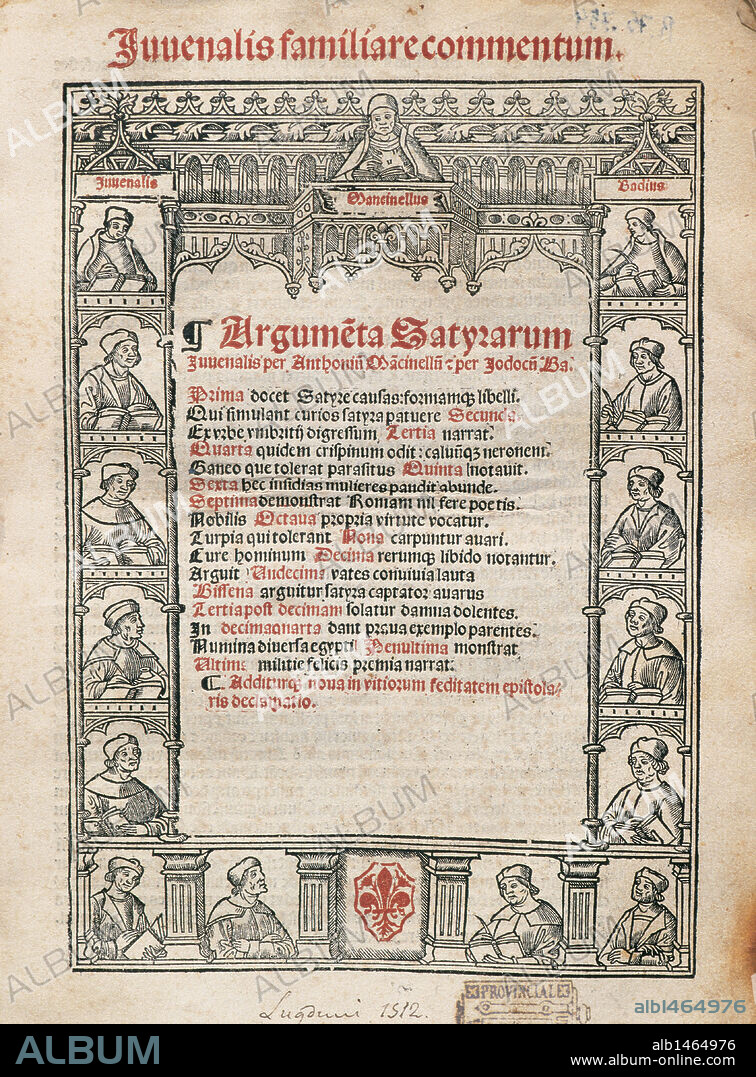 Juuenalis familiare commentum.
Juuenalis
Mancinellus
Badius
¶ Argumēta Satyrarum
Juuenalis per Anthoniū Mācinellū ⁊ per Jodocū Ba.
Prima docet Satyre causas: formamq; libelli.
Qui simulant curios satyra patuere Secunda.
Ex vrbe vmbritij digressum Tertia narrat.
Quarta quidem crispinum odit: caluūq; neronem.
Ganeo que tolerat parasitus Quinta notauit.
Sexta hec insidias mulieres pandit abunde.
Septima demonstrat Romani nil fere poetis.
Nobilis Octaua propria virtute vocatur.
Turpia qui tolerant Nona carpuntur auari.
Cure hominum Decima rerumq; libido notantur.
Arguit Undecima vates conuiuia lauta
Bissena arguitur satyra captator auarus
Tertia post decimam solatur damna dolentes.
In decimaquarta dant praua exemplo parentes.
Numina diuersa egypti Penultima monstrat
Ultima militie felicis premia narrat.
¶ Additurq; noua in vitiorum feditatem epistola-
ris declamatio.
Lugduni 1512.
PROVINCIALE
ALBUM
alb1464976
alb1464976
www.album-online.com